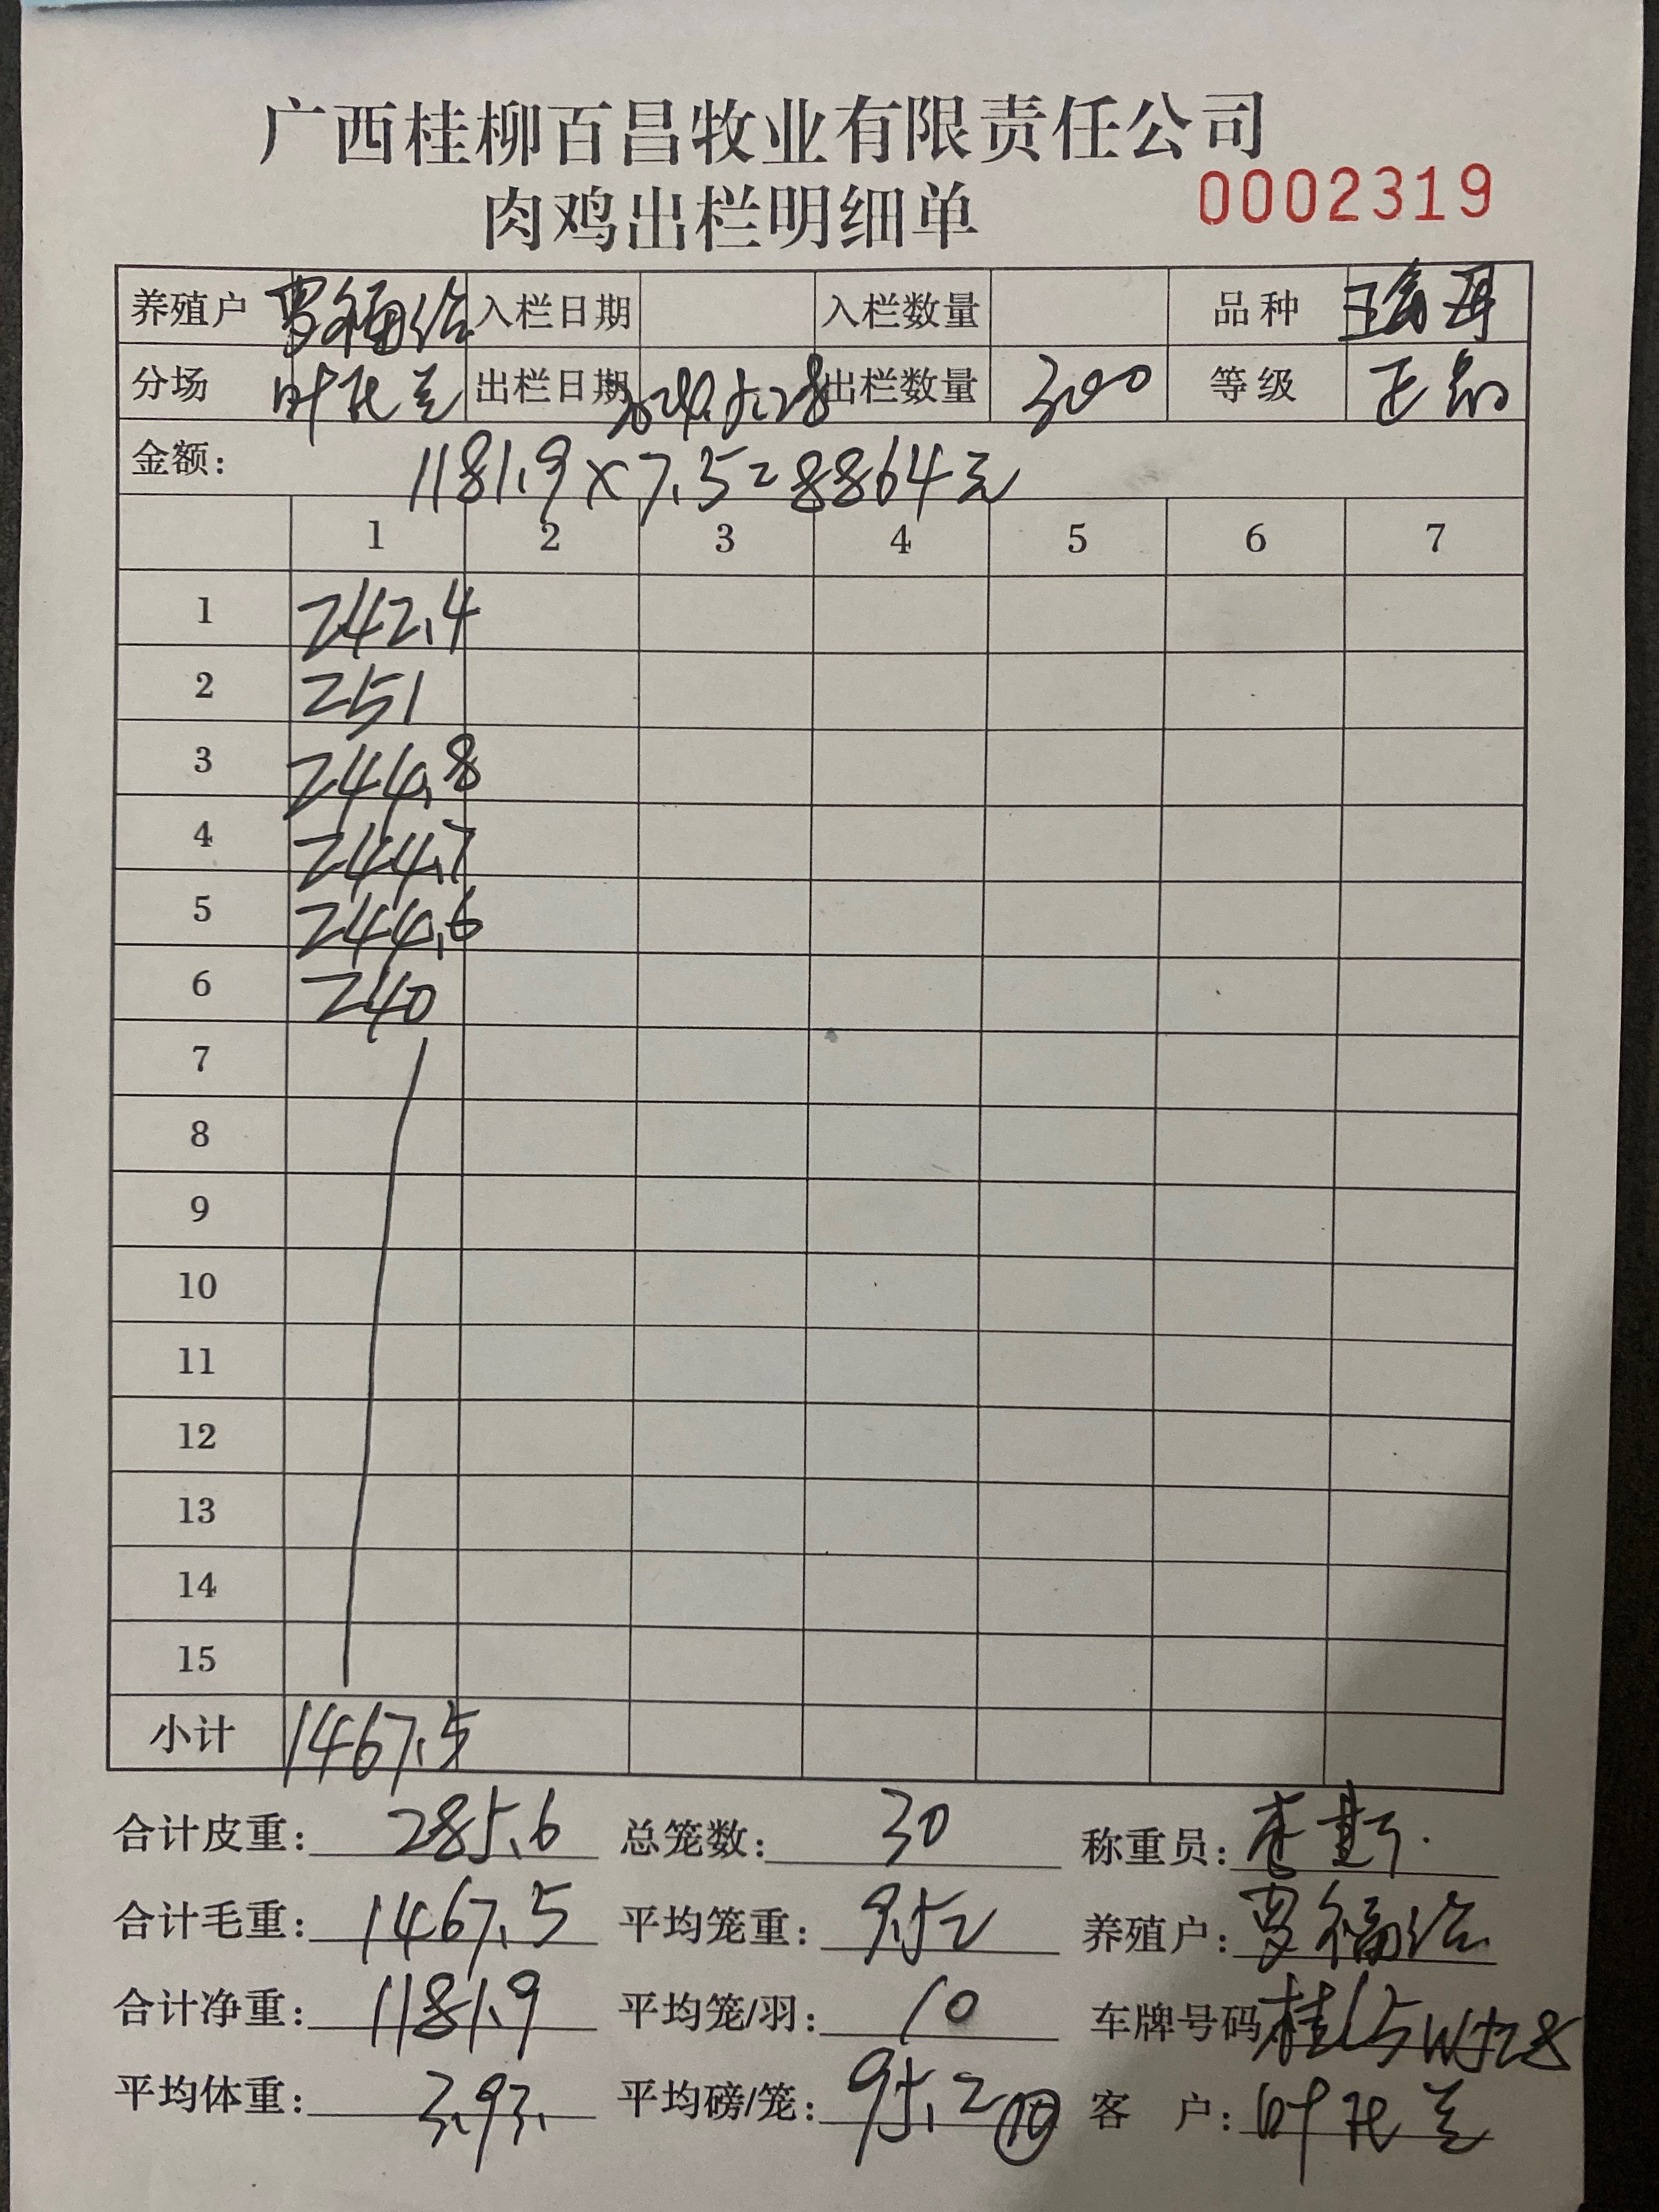 广西桂柳百昌牧业有限责任公司
肉鸡出栏明细单 0002319
养殖户 罗福 入栏日期 入栏数量 品种
分场 叶 兰 出栏日期 2024.5.28 出栏数量 300 等级 正
金额: 1181.9×7.5=8864元
1 2 3 4 5 6 7
1 242.4
2 251
3 244.8
4 244.7
5 244.6
6 240
7
8
9
10
11
12
13
14
15
小计 1467.5
合计皮重: 285.6 总笼数: 30 称重员: 李
合计毛重: 1467.5 平均笼重: 9.52 养殖户: 罗福
合计净重: 1181.9 平均笼/羽: 10 车牌号码 桂
平均体重: 3.93. 平均磅/笼: 95.2 ⑩ 客 户: 叶 兰